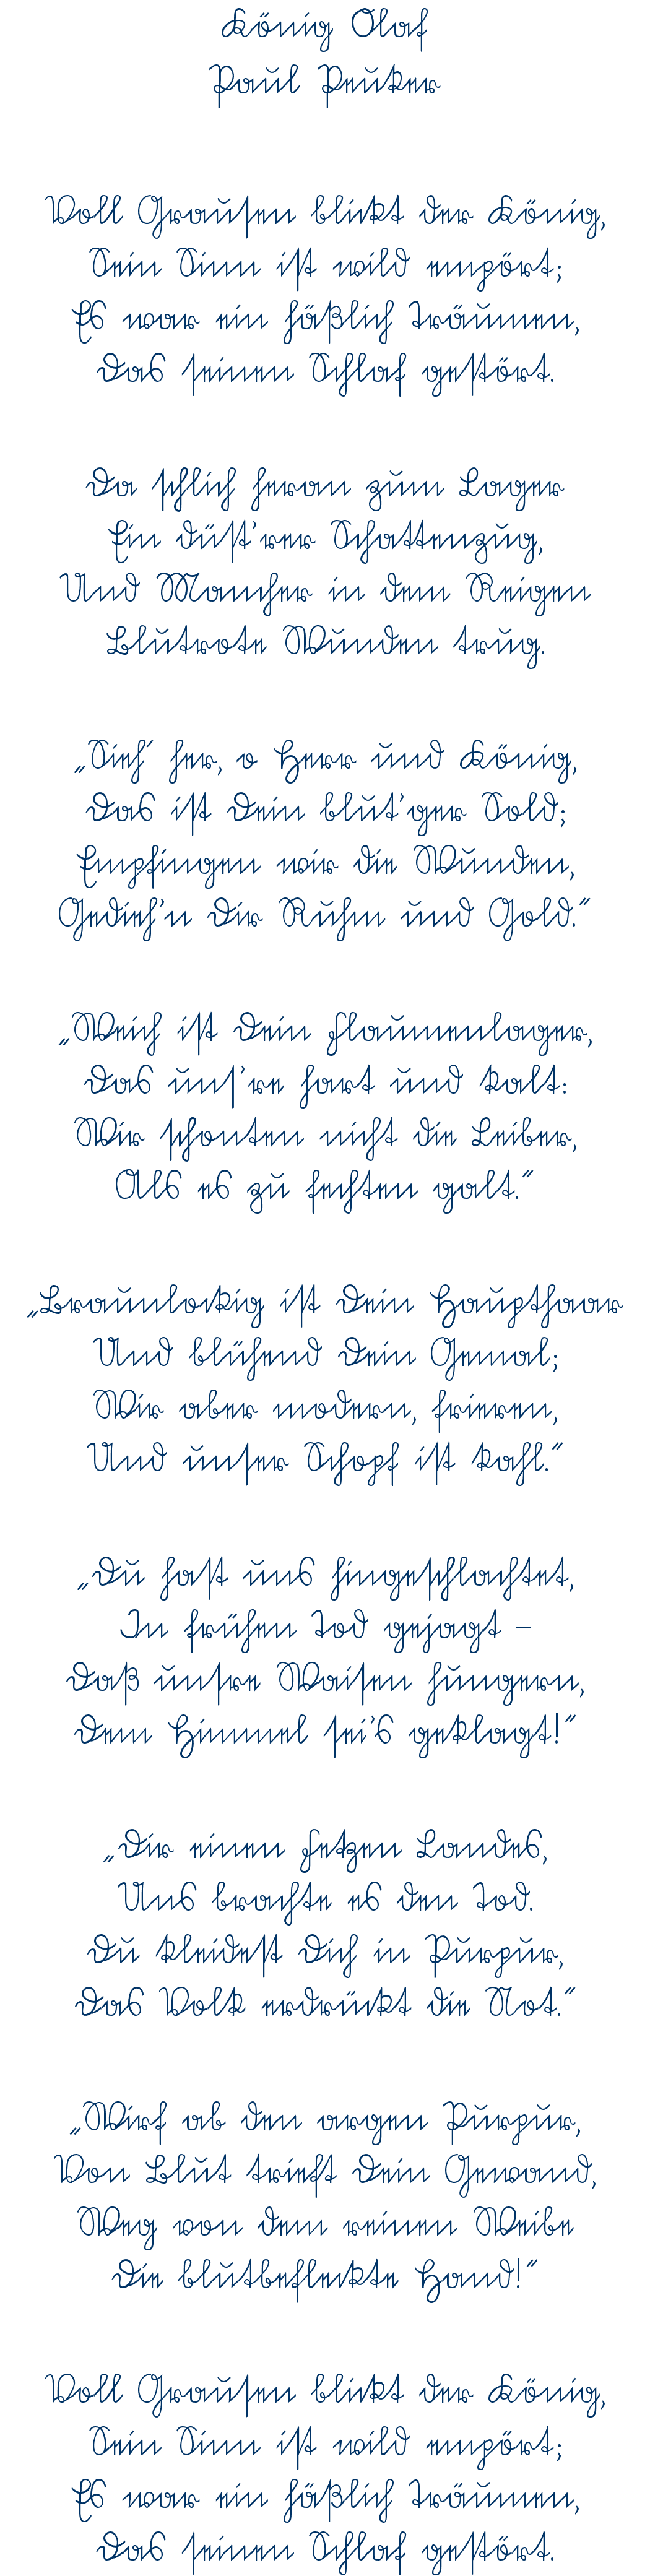 König Olaf
Paul Peuker
Voll Grausen blickt der König,
Sein Sinn ist wild empört;
Es war ein häßlich Träumen,
Das seinen Schlaf gestört.
Da schlich heran zum Lager
Ein düst'rer Schattenzug,
Und Mancher in dem Reigen
Blutrote Wunden trug.
„Sieh´ her, o Herr und König,
Das ist Dein blut'ger Sold;
Empfingen wir die Wunden,
Gedieh'n Dir Ruhm und Gold.“
„Weich ist Dein Flaumenlager,
Das uns're hart und kalt:
Wir schonten nicht die Leiber,
Als es zu fechten galt.“
„Braunlockig ist Dein Haupthaar
Und blühend Dein Gemal;
Wir aber modern, frieren,
Und unser Schopf ist kahl.“
„Du hast uns hingeschlachtet,
In frühen Tod gejagt –
Daß unsre Waisen hungern,
Dem Himmel sei's geklagt!“
„Dir einen Fetzen Landes,
Uns brachte es den Tod.
Du kleidest Dich in Purpur,
Das Volk erdrückt die Not.“
„Wirf ab den argen Purpur,
Von Blut trieft Dein Gewand,
Weg von dem reinen Weibe
Die blutbefleckte Hand!“
Voll Grausen blickt der König,
Sein Sinn ist wild empört;
Es war ein häßlich Träumen,
Das seinen Schlaf gestört.